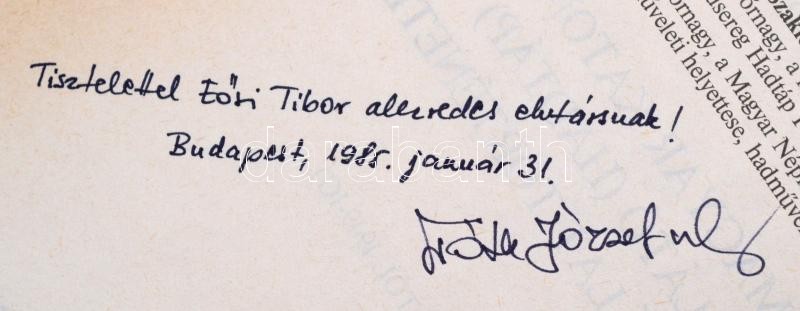 Tisztelettel Eősi Tibor alezredes elvtársnak!
Budapest, 1985. január 31.
Tóth József
darabanth
örnagy, a
sereg Hadtáp
ornagy, a Magyar Nép
űveleti helyettese, hadműve